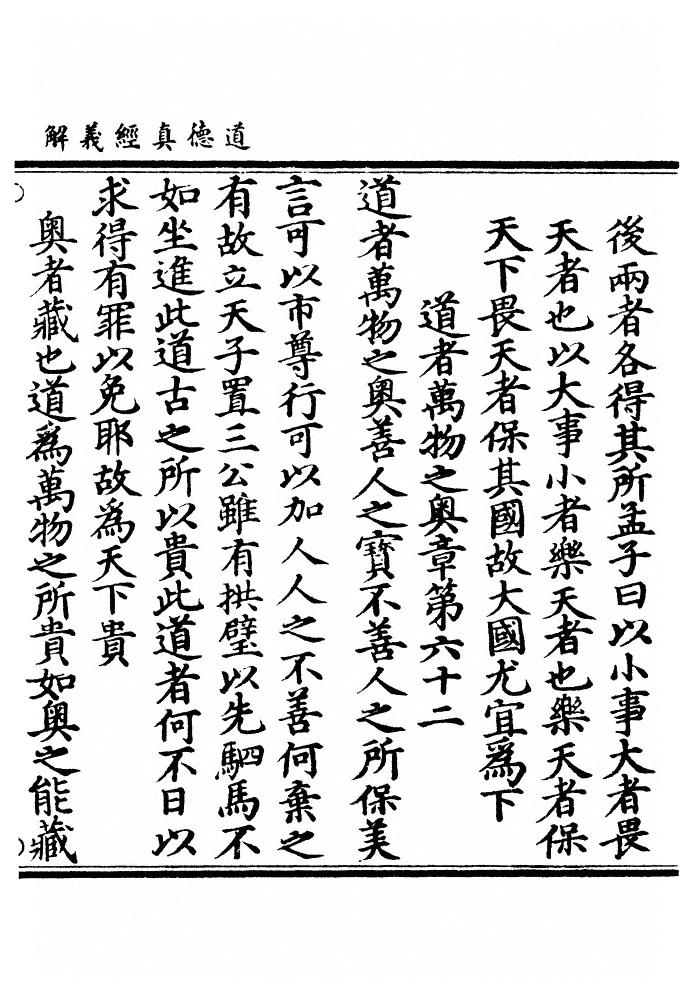 道德真經義解
後兩者各得其所孟子曰以小事大者畏
天者也以大事小者樂天者也樂天者保
天下畏天者保其國故大國尤宜為下
道者萬物之奧章第六十二
道者萬物之奧善人之寶不善人之所保美
言可以市尊行可以加人人之不善何棄之
有故立天子置三公雖有拱璧以先駟馬不
如坐進此道古之所以貴此道者何不日以
求得有罪以免耶故為天下貴
奧者藏也道為萬物之所貴如奧之能藏